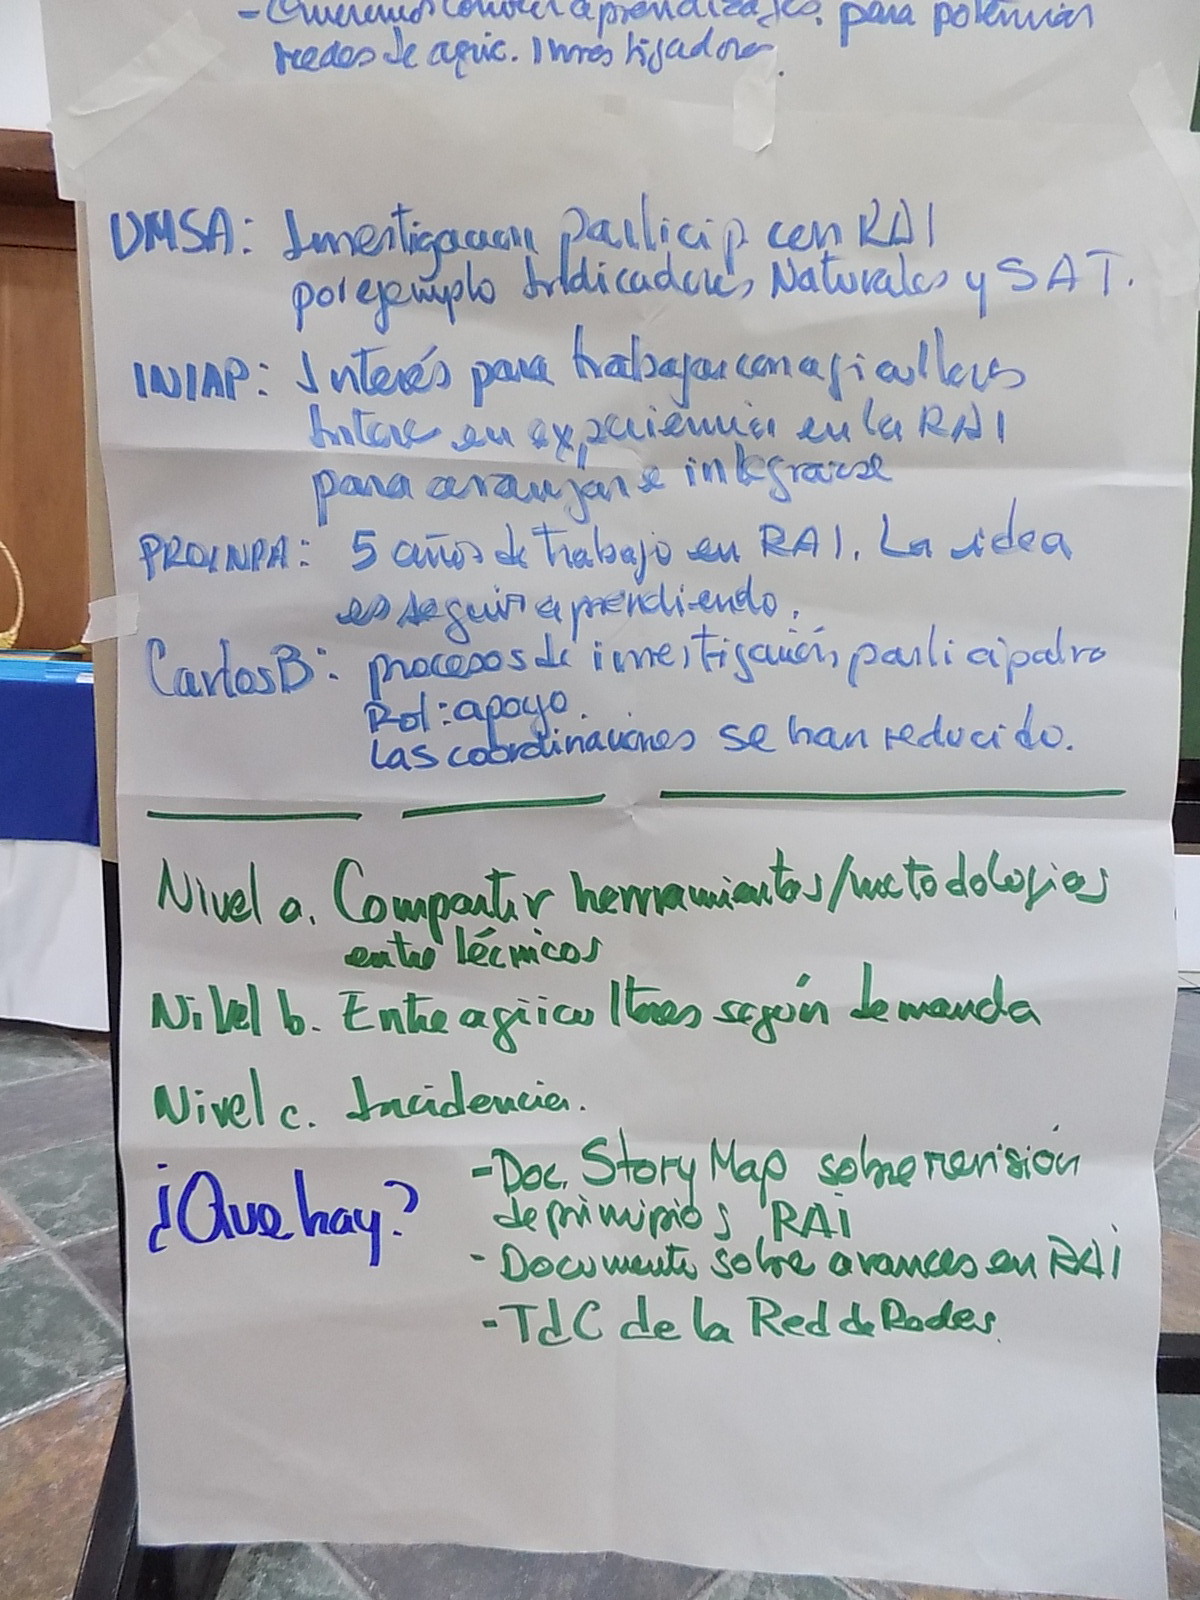 - Queremos conocer aprendizajes. para potenciar
redes de agric. Investigadores.
UMSA: Investigacion particip con RAI
por ejemplo Indicadores Naturales y SAT.
INIAP: Interés para trabajar con agricultores
en experiencia en la RAI
para e integrarse
PROINPA: 5 años de trabajo en RAI. La idea
es seguir aprendiendo.
Carlos B: procesos de investigación participativa
Rol: apoyo.
Las coordinaciones se han reducido.
Nivel a. Compartir herramientas/metodologias
entre técnicos
Nivel b. Entre agricultores según demanda
Nivel c. Incidencia.
¿Que hay?
- Doc. Story Map sobre revisión
de principios RAI
- Documento sobre avances en RAI
- TdC de la Red de Redes.